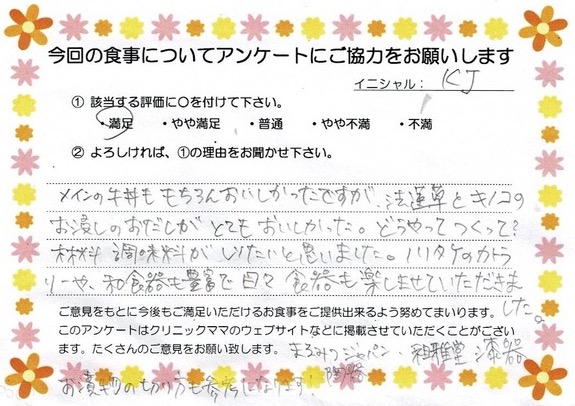 今回の食事についてアンケートにご協力をお願いします
イニシャル： KJ
① 該当する評価に○を付けて下さい。
・満足 ・やや満足 ・普通 ・やや不満 ・不満
② よろしければ、①の理由をお聞かせ下さい。
メインの牛丼も もちろんおいしかったですが、法蓮草とキノコの
お浸しのおだしが とてもおいしかった。どうやってつくって?
材料 調味料がしりたいと思いました。ノリタケのカトラ
リーや、和食器も豊富で日々 食器も楽しませていただきま
した。
ご意見をもとに今後もご満足いただけるお食事をご提供出来るよう努めてまいります。
このアンケートはクリニックママのウェブサイトなどに掲載させていただくことがござい
ます。たくさんのご意見をお願い致します。
まるみつジャパン・ 雅堂 漆器
陶器
お漬物の切り方も参考になります!